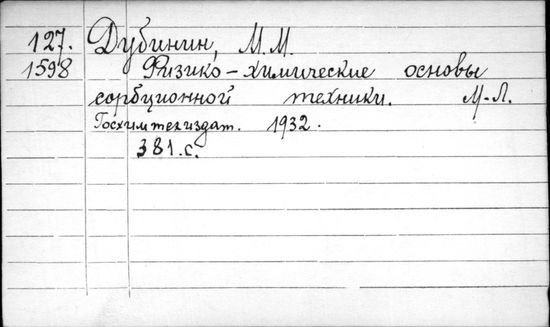 127. Дубинин, М.М.
1598 Физико-химические основы
сорбционной техники. М-Л.
Госхимтехиздат. 1932.
381.с.